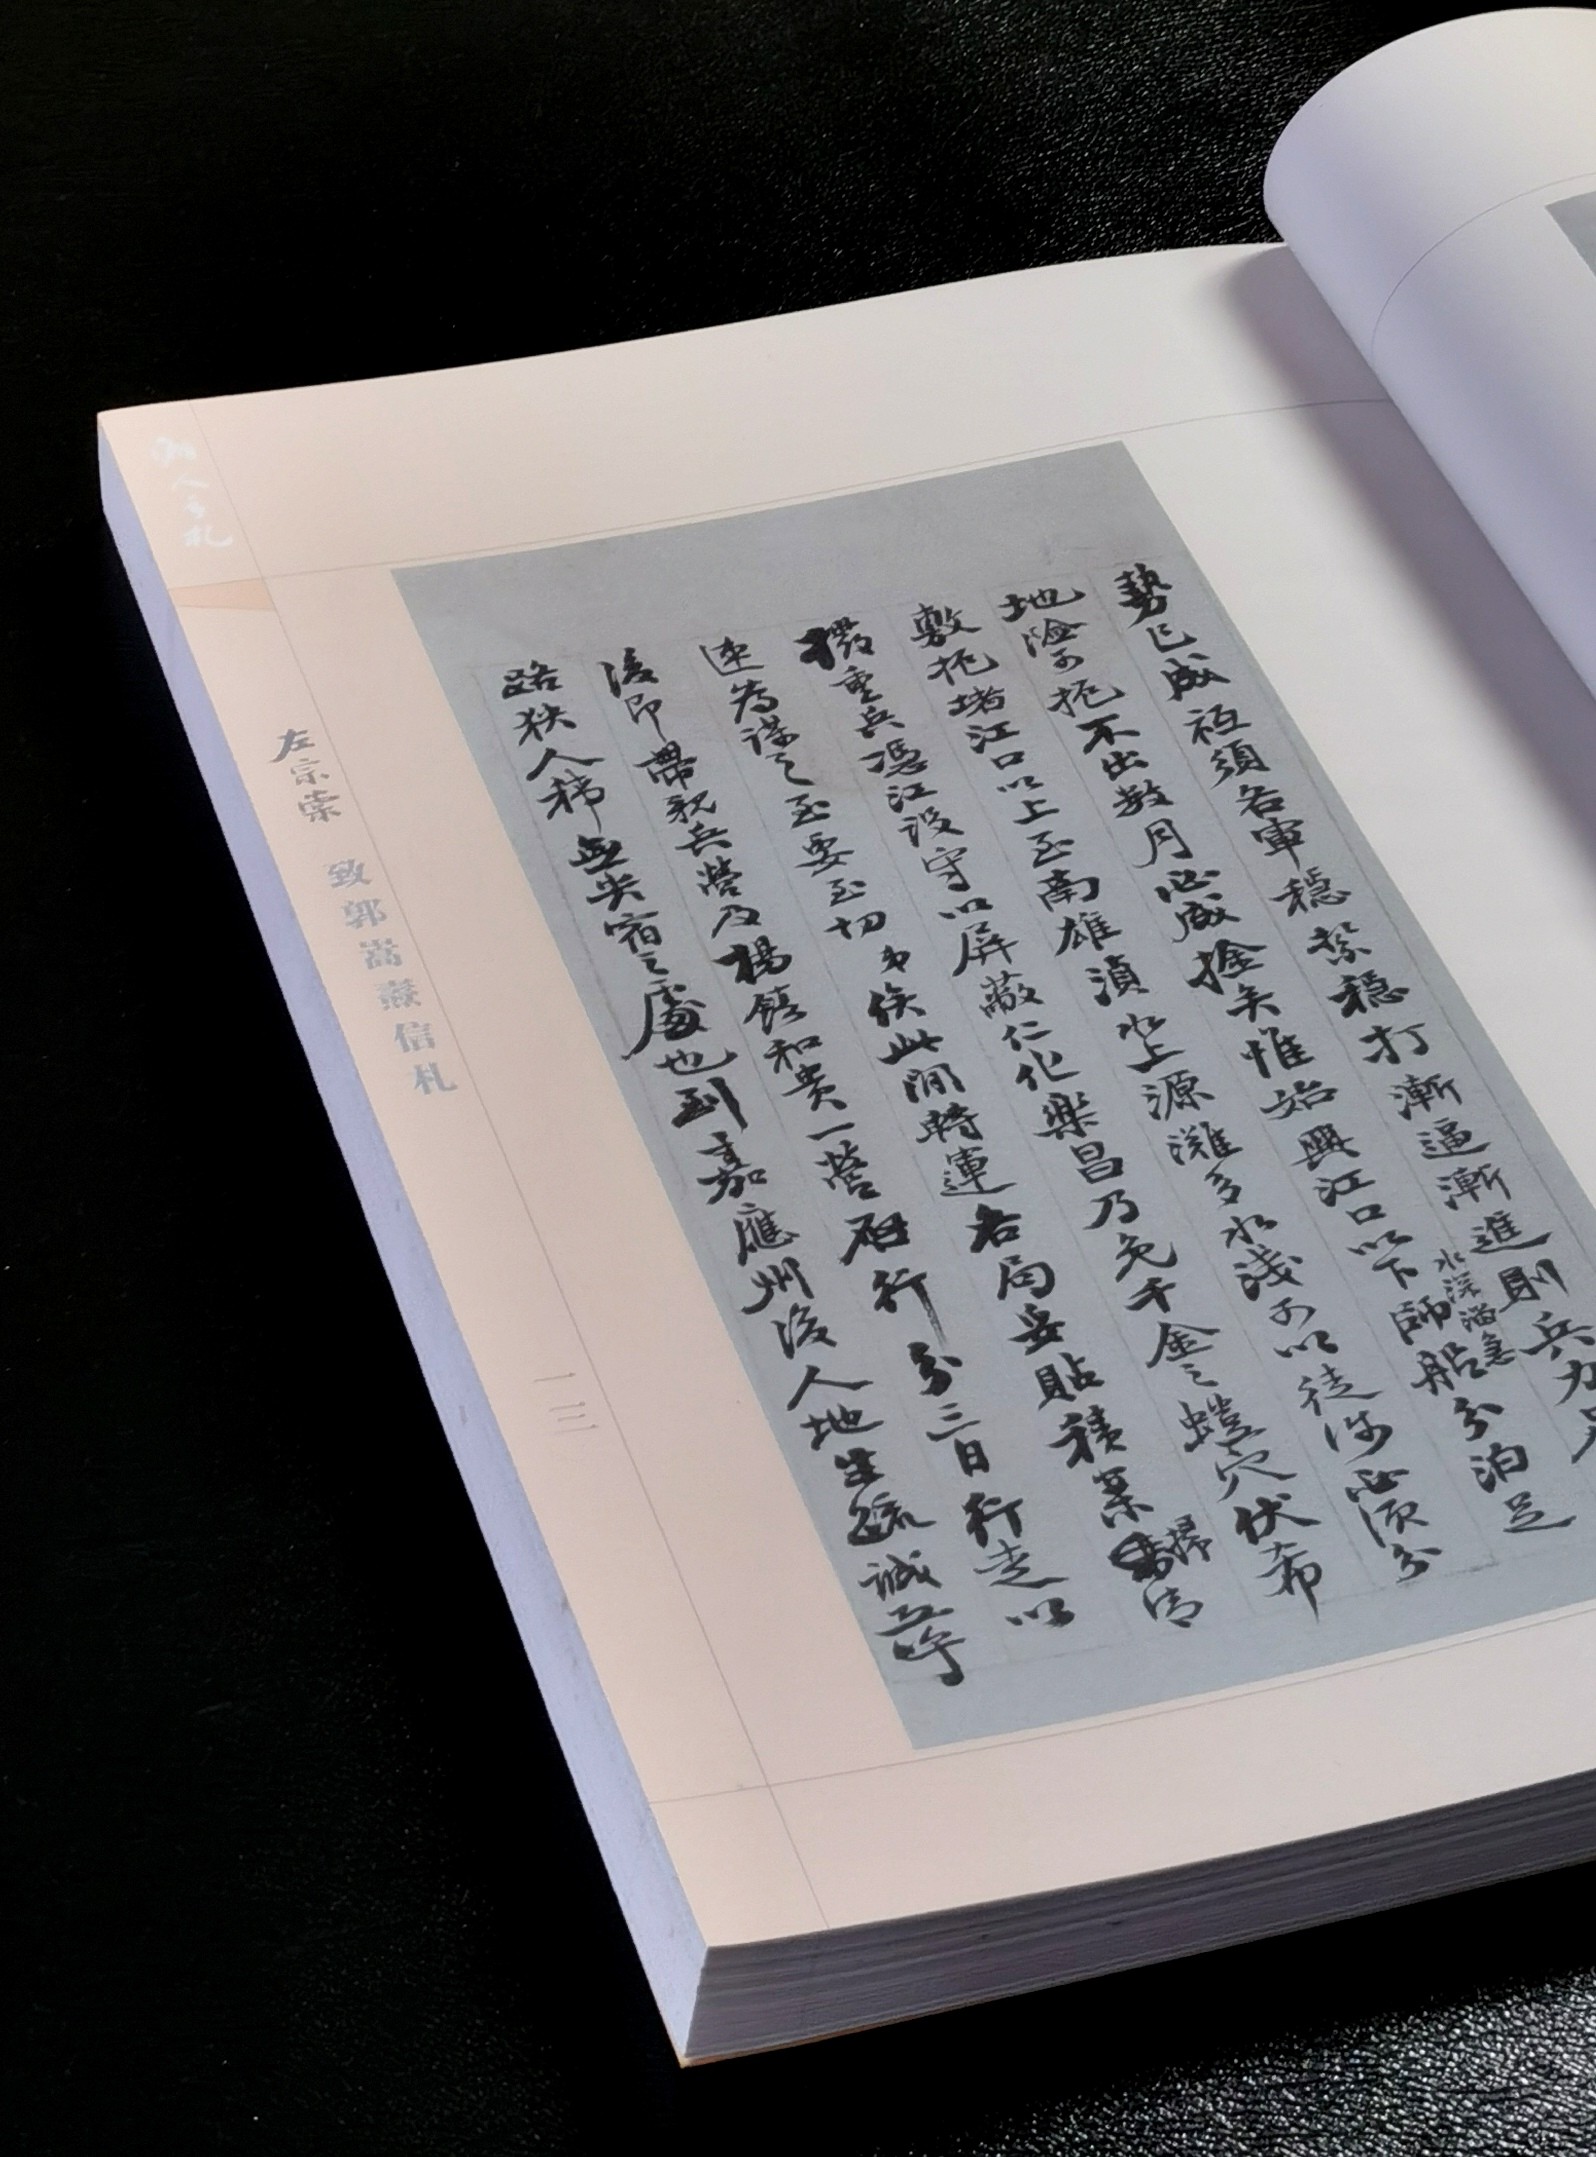 勢已成祗須各軍穩紮穩打漸逼漸進則兵力
地險可扼不出數月必成擒矣惟始興江口以下水深溜急師船分泊足
敷扼堵江口以上至南雄湞水上源灘多水淺可以徒涉必須分
撥重兵憑江設守以屏蔽仁化樂昌乃免千金之螘穴伏希
速為謀之至要至切弟俟此間轉運各局妥貼積案掃清
後即帶親兵營及楊餉和貴一營啟行分三日行走以
路狹人稀無尖宿之處也到嘉應州後人地生疏誠
湘人手札
左宗棠 致郭嵩燾信札
一三